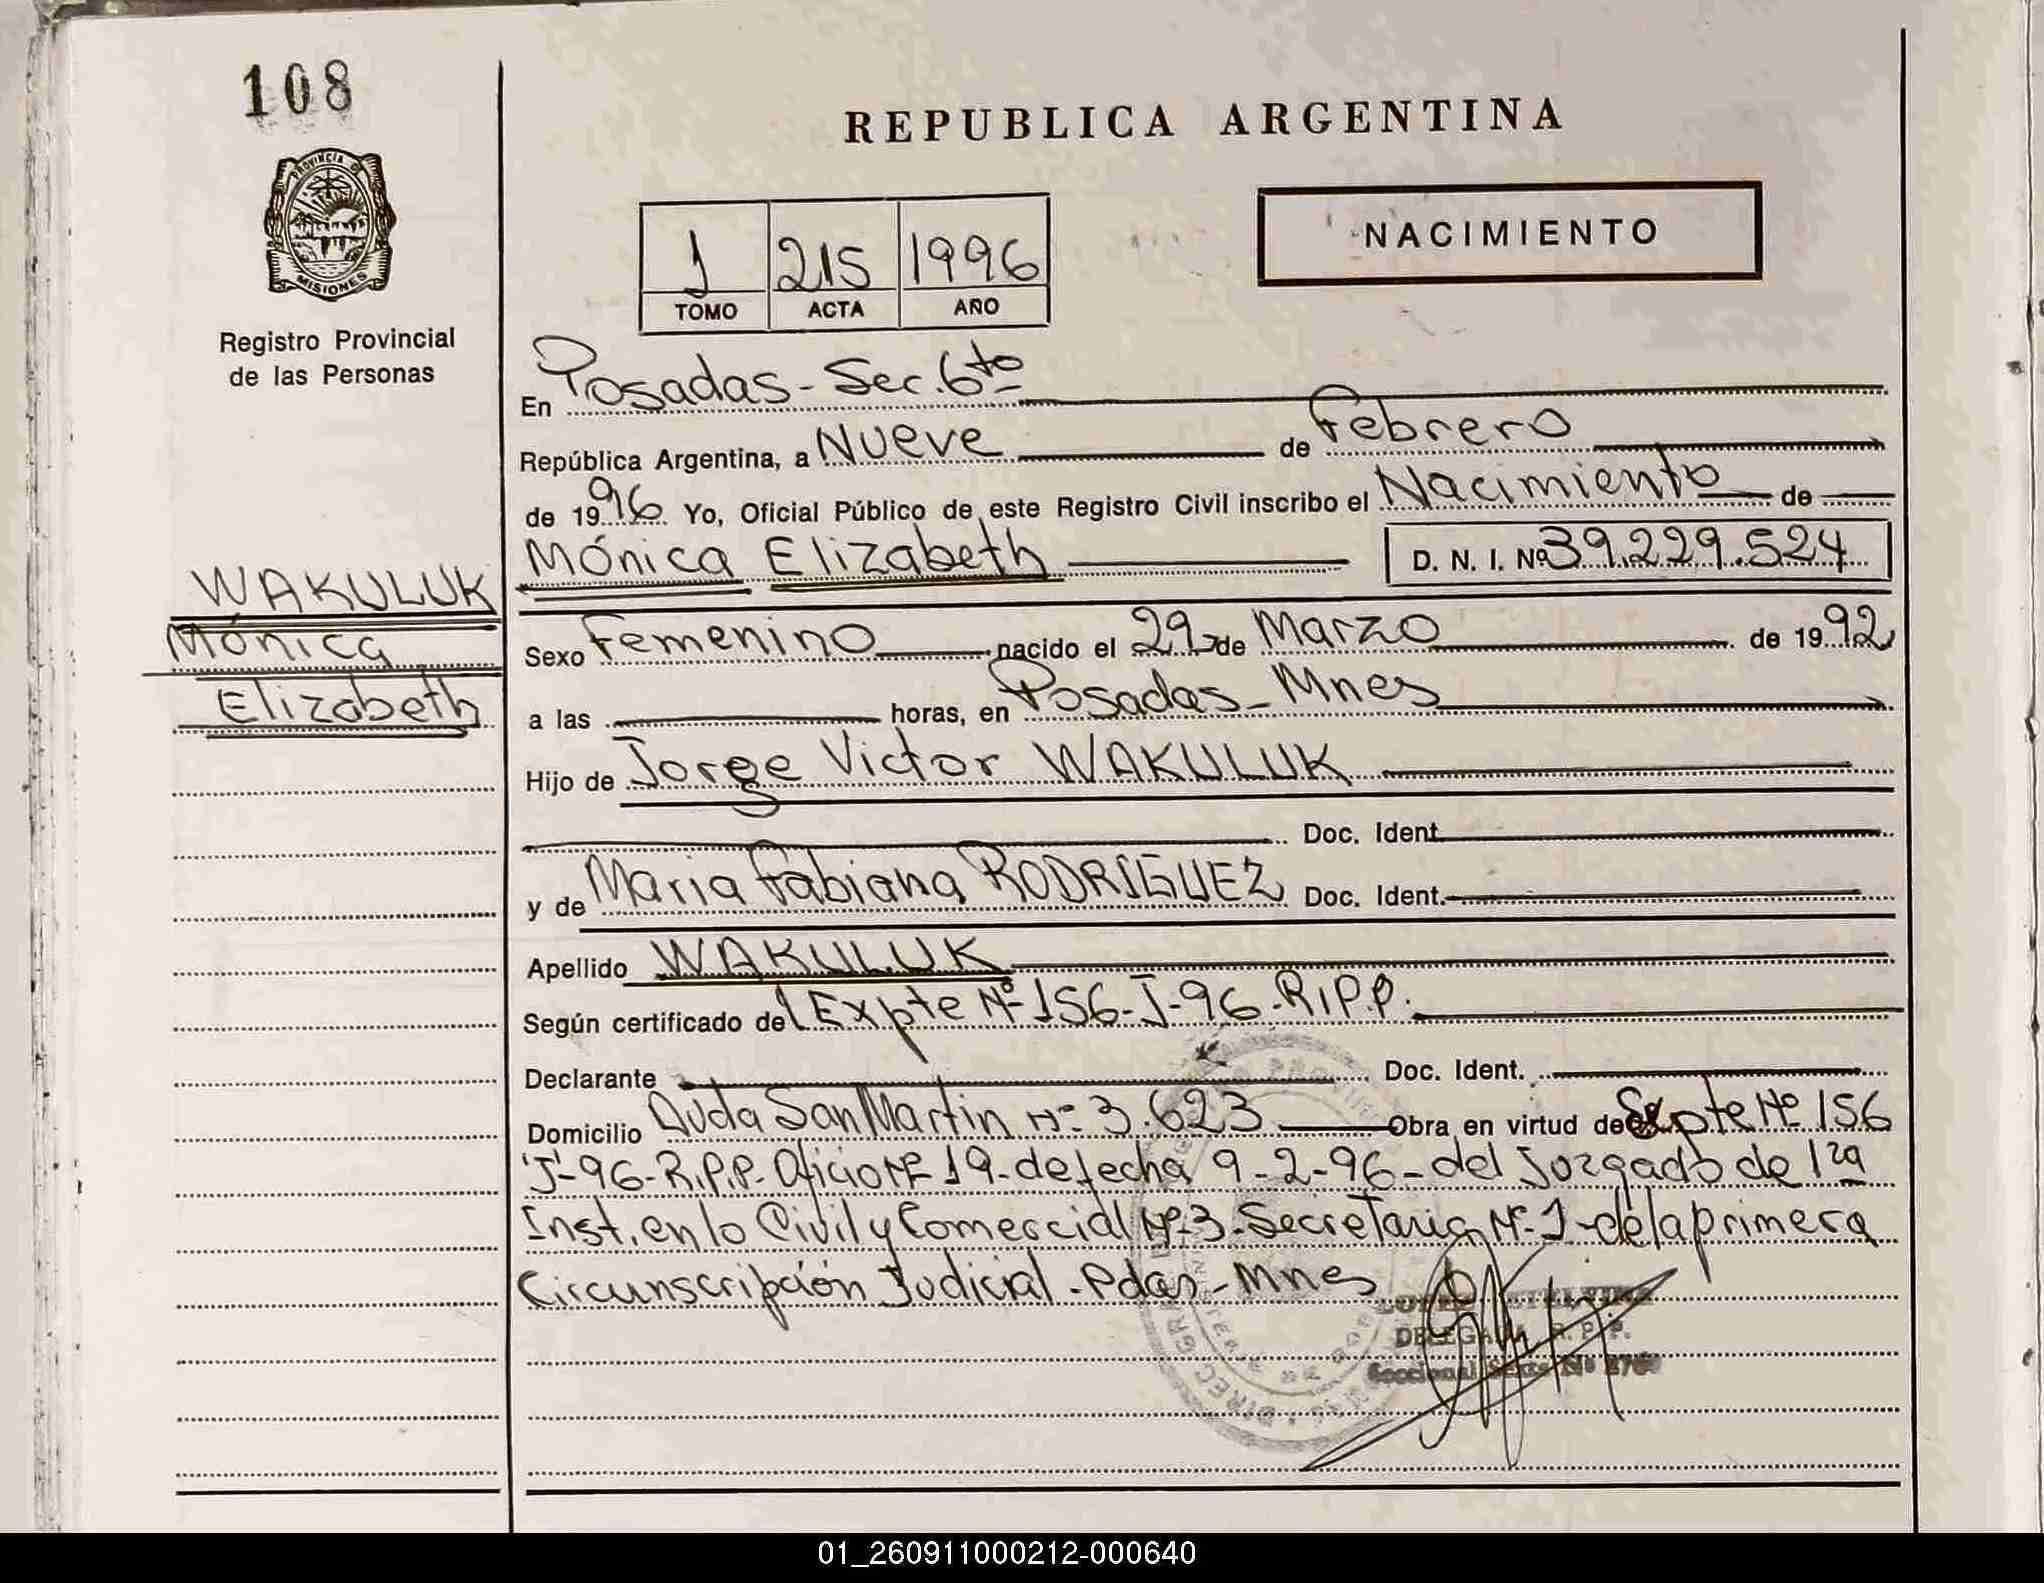 108
REPUBLICA ARGENTINA
PROVINCIA DE
MISIONES
Registro Provincial
de las Personas
1 215 1996
TOMO ACTA AÑO
NACIMIENTO
En Posadas - Sec. 6to
República Argentina, a Nueve de Febrero
de 1996 Yo, Oficial Público de este Registro Civil inscribo el Nacimiento de
Mónica Elizabeth D. N. I. Nº 39.229.524
WAKULUK
Mónica
Elizabeth
Sexo Femenino nacido el 29 de Marzo de 1992
a las horas, en Posadas - Mnes
Hijo de Jorge Victor WAKULUK
Doc. Ident.
y de Maria Fabiana RODRIGUEZ Doc. Ident.
Apellido WAKULUK
Según certificado del Expte Nº 156-J-96-R.P.P.
Declarante Doc. Ident.
Domicilio Avda San Martin Nº 3.623 Obra en virtud de Expte Nº 156
"J"-96-R.P.P. Oficio Nº 19- de fecha 9-2-96- del Juzgado de 1ra
Inst. en lo Civil y Comercial Nº 3- Secretaria Nº 1- de la primera
Circunscripción Judicial - Pdas - Mnes
DELEGADA R. P. P.
Seccional Sexta Nº
01_260911000212-000640